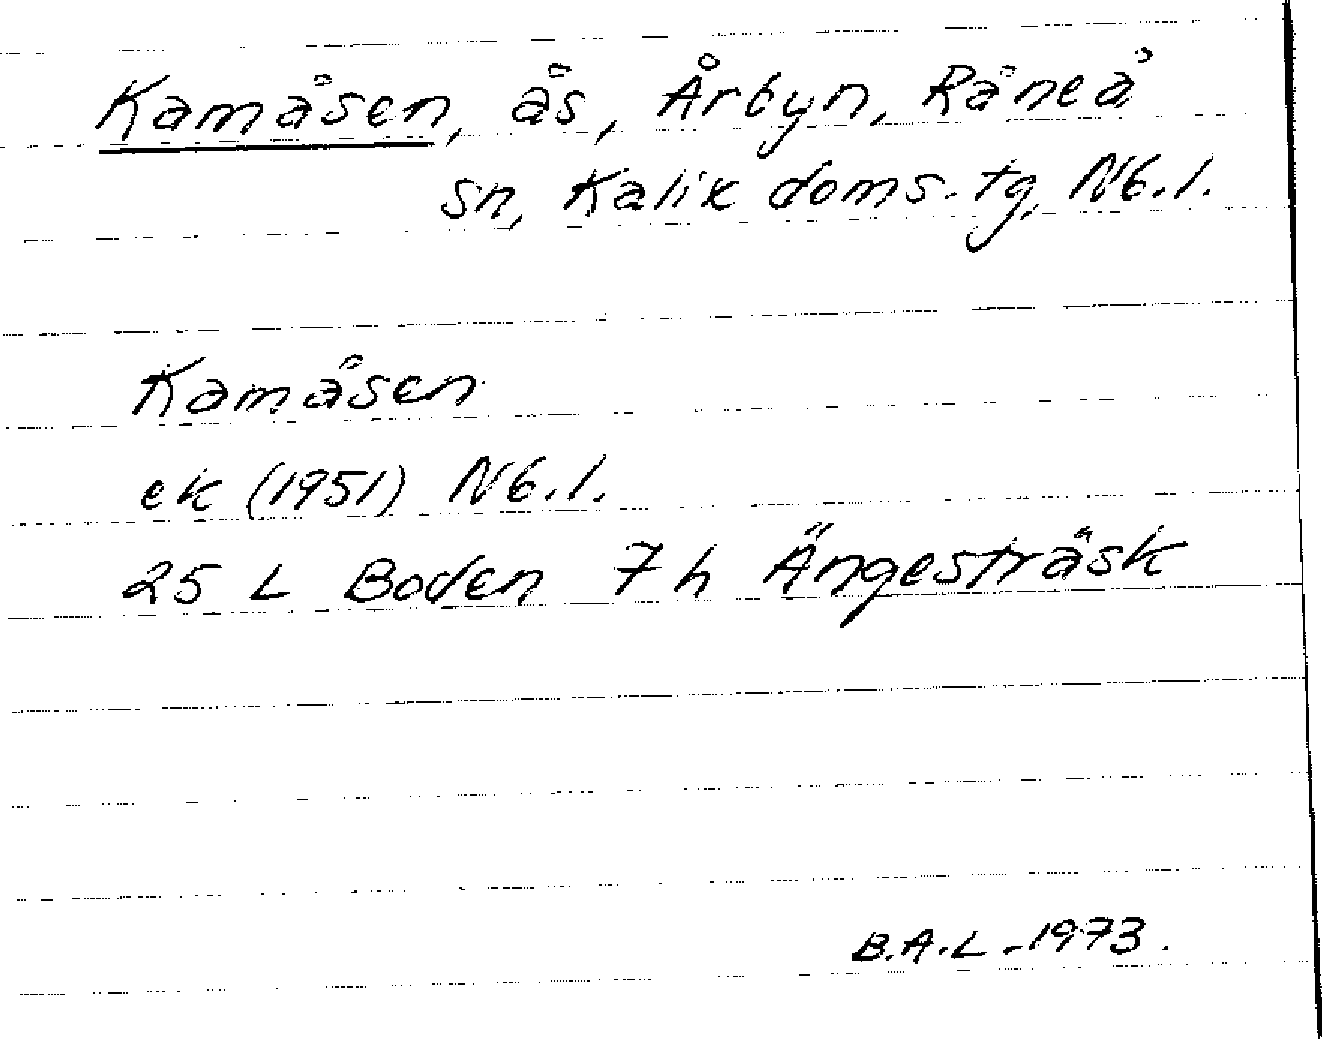 Kamåsen, ås, Årbyn, Råneå
sn, Kalix doms. tg, Nb. l.
Kamåsen
ek (1951) Nb. l.
25 L Boden 7 h Ängesträsk
B.A.L -1973.